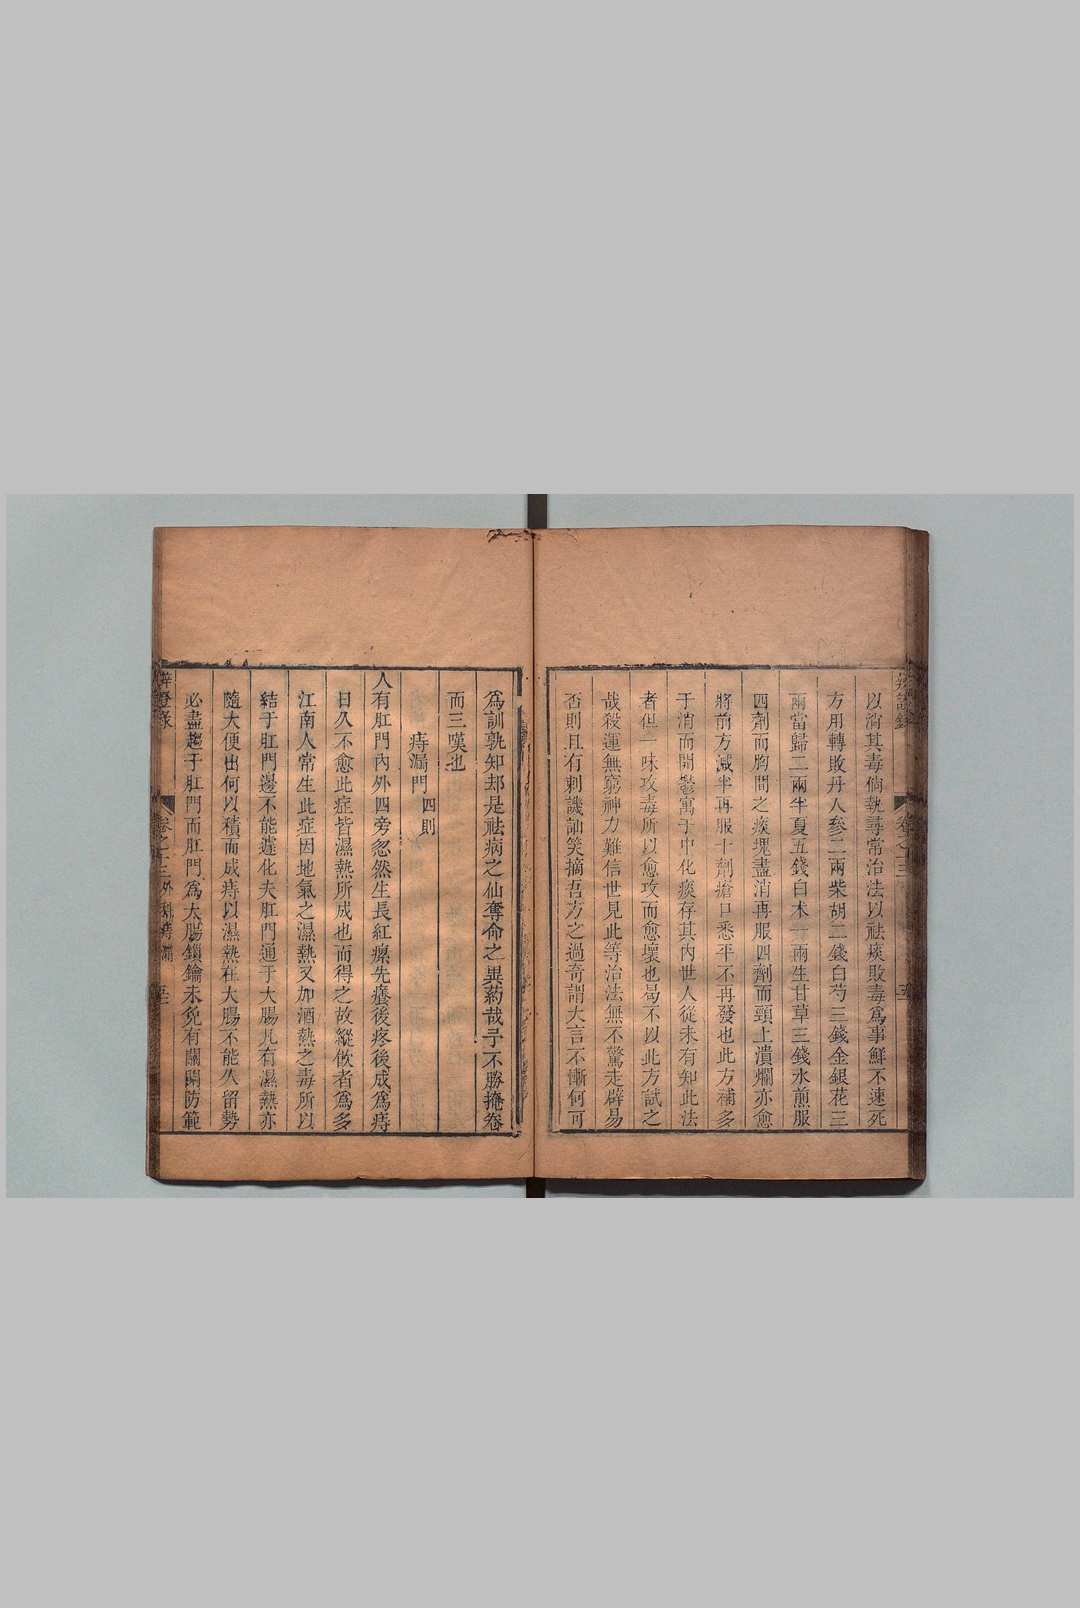 以消其毒倘執尋常治法以祛痰敗毒爲事鮮不速死
方用轉敗丹人參二兩柴胡二錢白芍三錢金銀花三
兩當歸二兩半夏五錢白术一兩生甘草三錢水煎服
四劑而胸間之痰塊盡消再服四劑而頸上潰爛亦愈
將前方減半再服十劑瘡口悉平不再發也此方補多
于消而開鬱寓于中化痰存其内世人從未有知此法
者但一味攻毒所以愈攻而愈壞也曷不以此方試之
哉殺運無窮神力難信世見此等治法無不驚走辟易
否則且有刺譏訕笑摘吾方之過奇謂大言不慚何可
爲訓孰知却是祛病之仙奪命之異葯哉予不勝掩卷
而三嘆也
痔漏門 四則
人有肛門内外四旁忽然生長紅瘰先癢後疼後成爲痔
日久不愈此症皆濕熱所成也而得之故縱飲者爲多
江南人常生此症因地氣之濕熱又加酒熱之毒所以
結于肛門邊不能遽化夫肛門通于大腸凡有濕熱亦
隨大便出何以積而成痔以濕熱在大腸不能久留勢
必盡趨于肛門而肛門爲大腸鎖鑰未免有關閉防範
辨證錄
卷之十三 外科痔漏